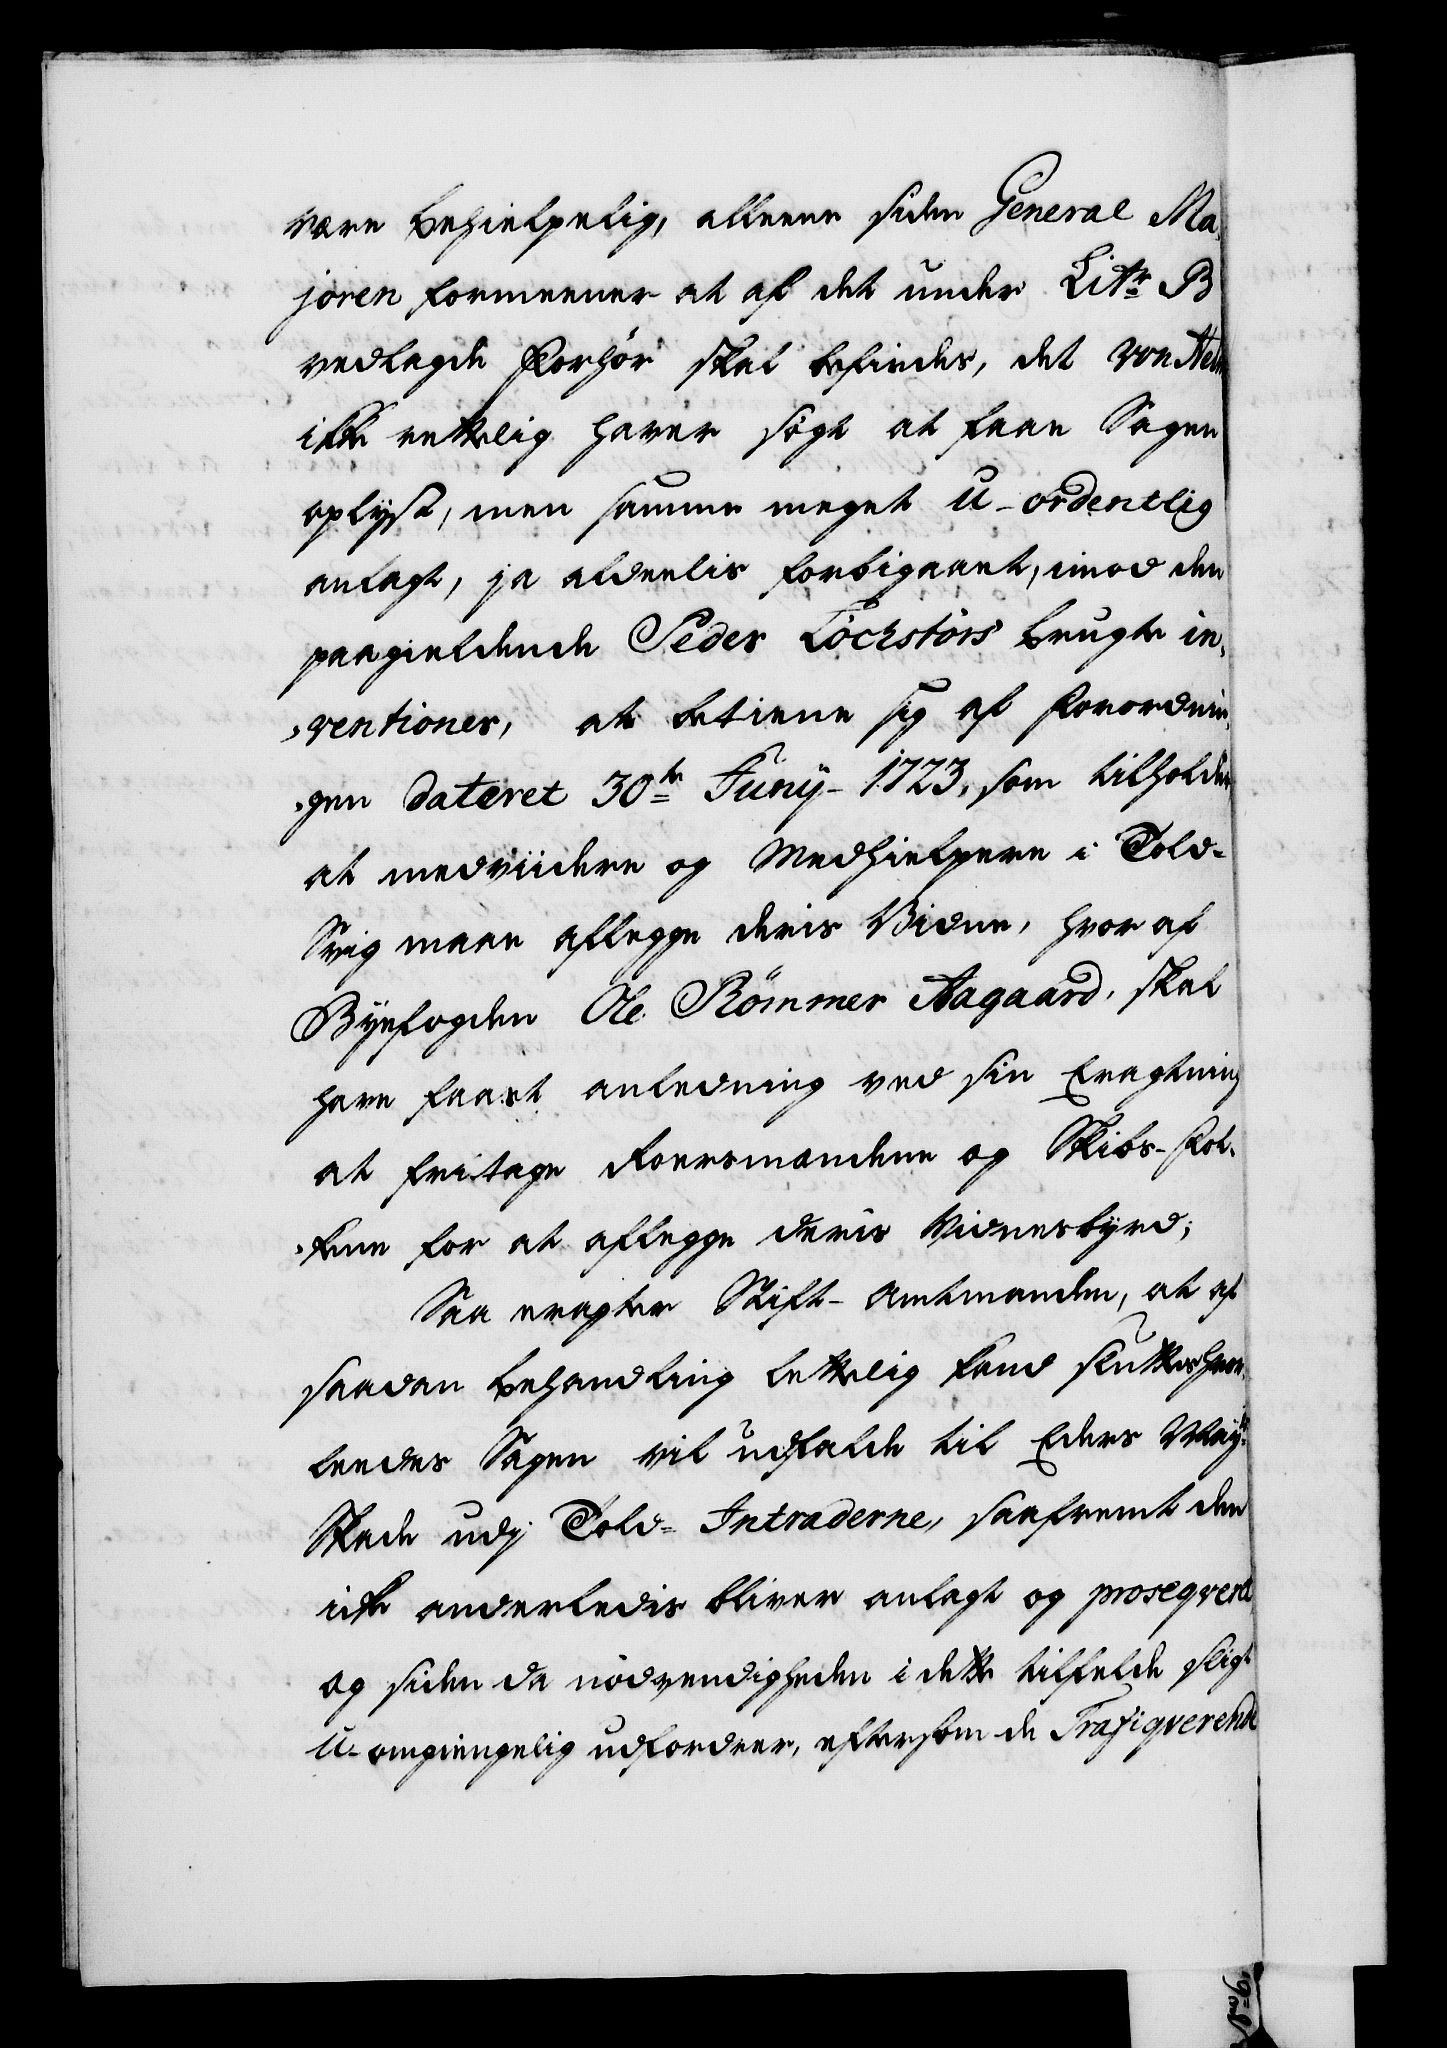 være behielpelig, alleene siden General Ma,
joren formeener at af det under Litr B
vedlagde Forhör skal befindes, det von
icke rettelig haver sögt at faae Sagen
oplyst, men samme meget U-ordentlig
anlagt, ja aldeelis forbigaaet, imod den
paagieldende Peder Löchstörs brugte in,
,ventioner, at betiene sig af Forordnin,
,gen dateret 30te Junÿ 1723, som tilholder
at medviidere og Medhielpere i Told-
Svig maae aflegge deris Vidne, hvor af
Bÿefogden Ole Römmer Aagaard, skal
have faaet anledning ved sin Eragtning
at fritage Foersmandene og Skibs-Fol,
,kene for at aflegge deris Vidnesbÿrd;
Saa eragter Stift-Amtmanden, at af
saadan behandling lettelig kand sluttes hvor,
ledes Sagen vil udfalde til Eders Maÿts
Skade udj Told-Intraderne, saafremt den
icke anderledis bliver anlagt og proseqveret
og siden da nödvendigheden i dette tilfelde sligt
U-omgiengelig udfordrer, eftersom de Trafiqverende